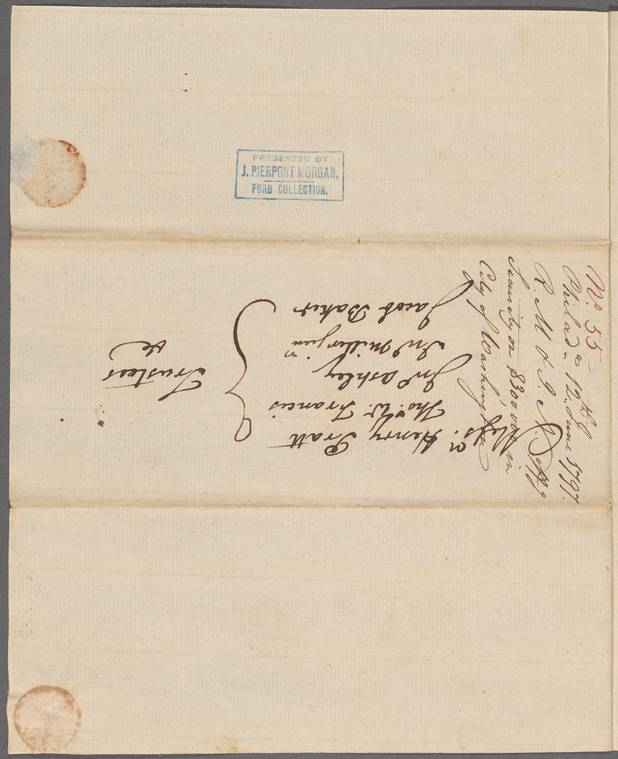 PRESENTED BY
J. PIERPONT MORGAN,
FORD COLLECTION.
No. 55
Philada. 12th June 1797.
R. M. & J. N.
Security on in
City of Washington
Messrs. Henry Pratt
Thos. W. Francis
Jno. Ashley
Jno. Miller junr
Jacob Baker
Trustees
&c